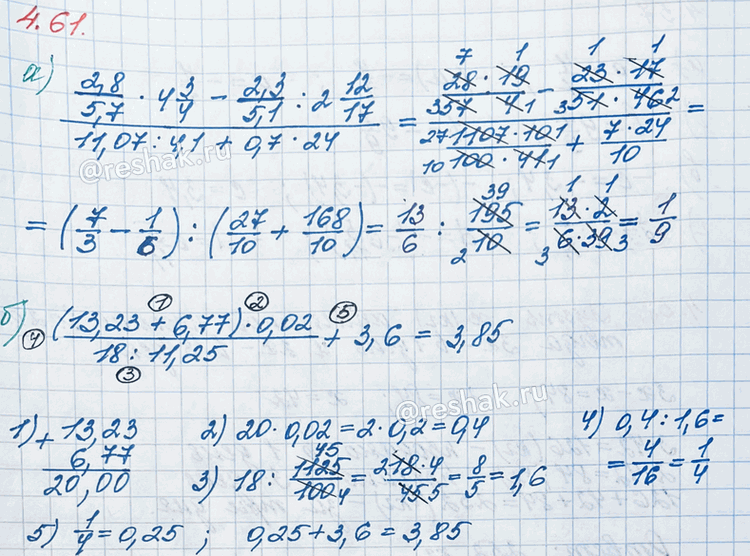 4.61.
а) (2,8/5,7 · 4 3/4 − 2,3/5,1 : 2 12/17) / (11,07 : 4,1 + 0,7 · 24) = (28 · 19 / 57 · 4 − 23 · 17 / 51 · 46) / (1107 · 10 / 100 · 41 + 7 · 24 / 10) =
= (7/3 − 1/6) : (27/10 + 168/10) = 13/6 : 195/10 = 13 · 2 / 6 · 39 = 1/9
б) (13,23 + 6,77) · 0,02 / 18 : 11,25 + 3,6 = 3,85
1) + 13,23 6,77 20,00
2) 20 · 0,02 = 2 · 0,2 = 0,4
3) 18 : 1125/100 = 18 · 4 / 45 = 8/5 = 1,6
4) 0,4 : 1,6 =
= 4/16 = 1/4
5) 1/4 = 0,25 ; 0,25 + 3,6 = 3,85
@reshak.ru
@reshak.ru